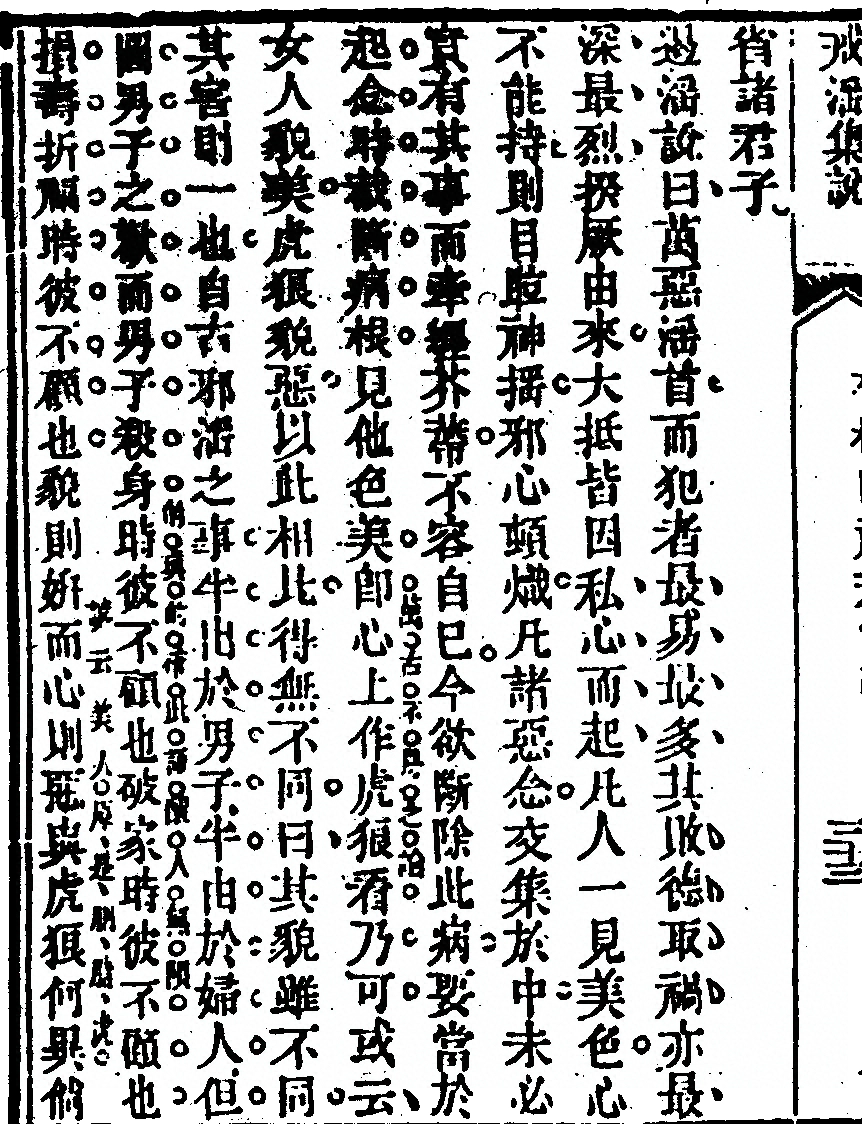 戒淫集說
三三
省諸君子
遏淫說曰萬惡淫首而犯者最易最多其敗德取禍亦最
深最烈揆厥由來大抵皆因私心而起凡人一見美色心
不能持則目眩神搖邪心頓熾凡諸惡念交集於中未必
實有其事而牽纏芥蒂不容自已今欲斷除此病要當於
起念時截斷病根見他色美即心上作虎狼看乃可或云
女人貌美虎狼貌惡以此相比得無不同曰其貌雖不同
其害則一也自古邪淫之事半由於男子半由於婦人但
圖男子之歡而男子殺身時彼不顧也破家時彼不顧也
損壽折福時彼不顧也貌則妍而心則惡與虎狼何異倘